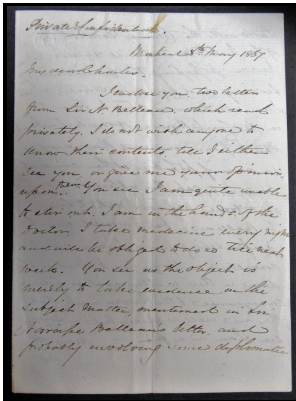 Private & Confidential
Montreal 8th May 1867
My dear Charles.
I enclose you two letters
from Sir N. Belleau, which read
privately. I do not wish anyone to
know their contents, till I either
see you or give me your opinion
upon them. You see I am quite unable
to stir out. I am in the hands of the
Doctor. I take medicine every night
and will be obliged to do so till next
week. You see as the object is
merely to take evidence on the
subject matter, mentioned in Sir
Narcisse Belleau's letter, and
probably involving some